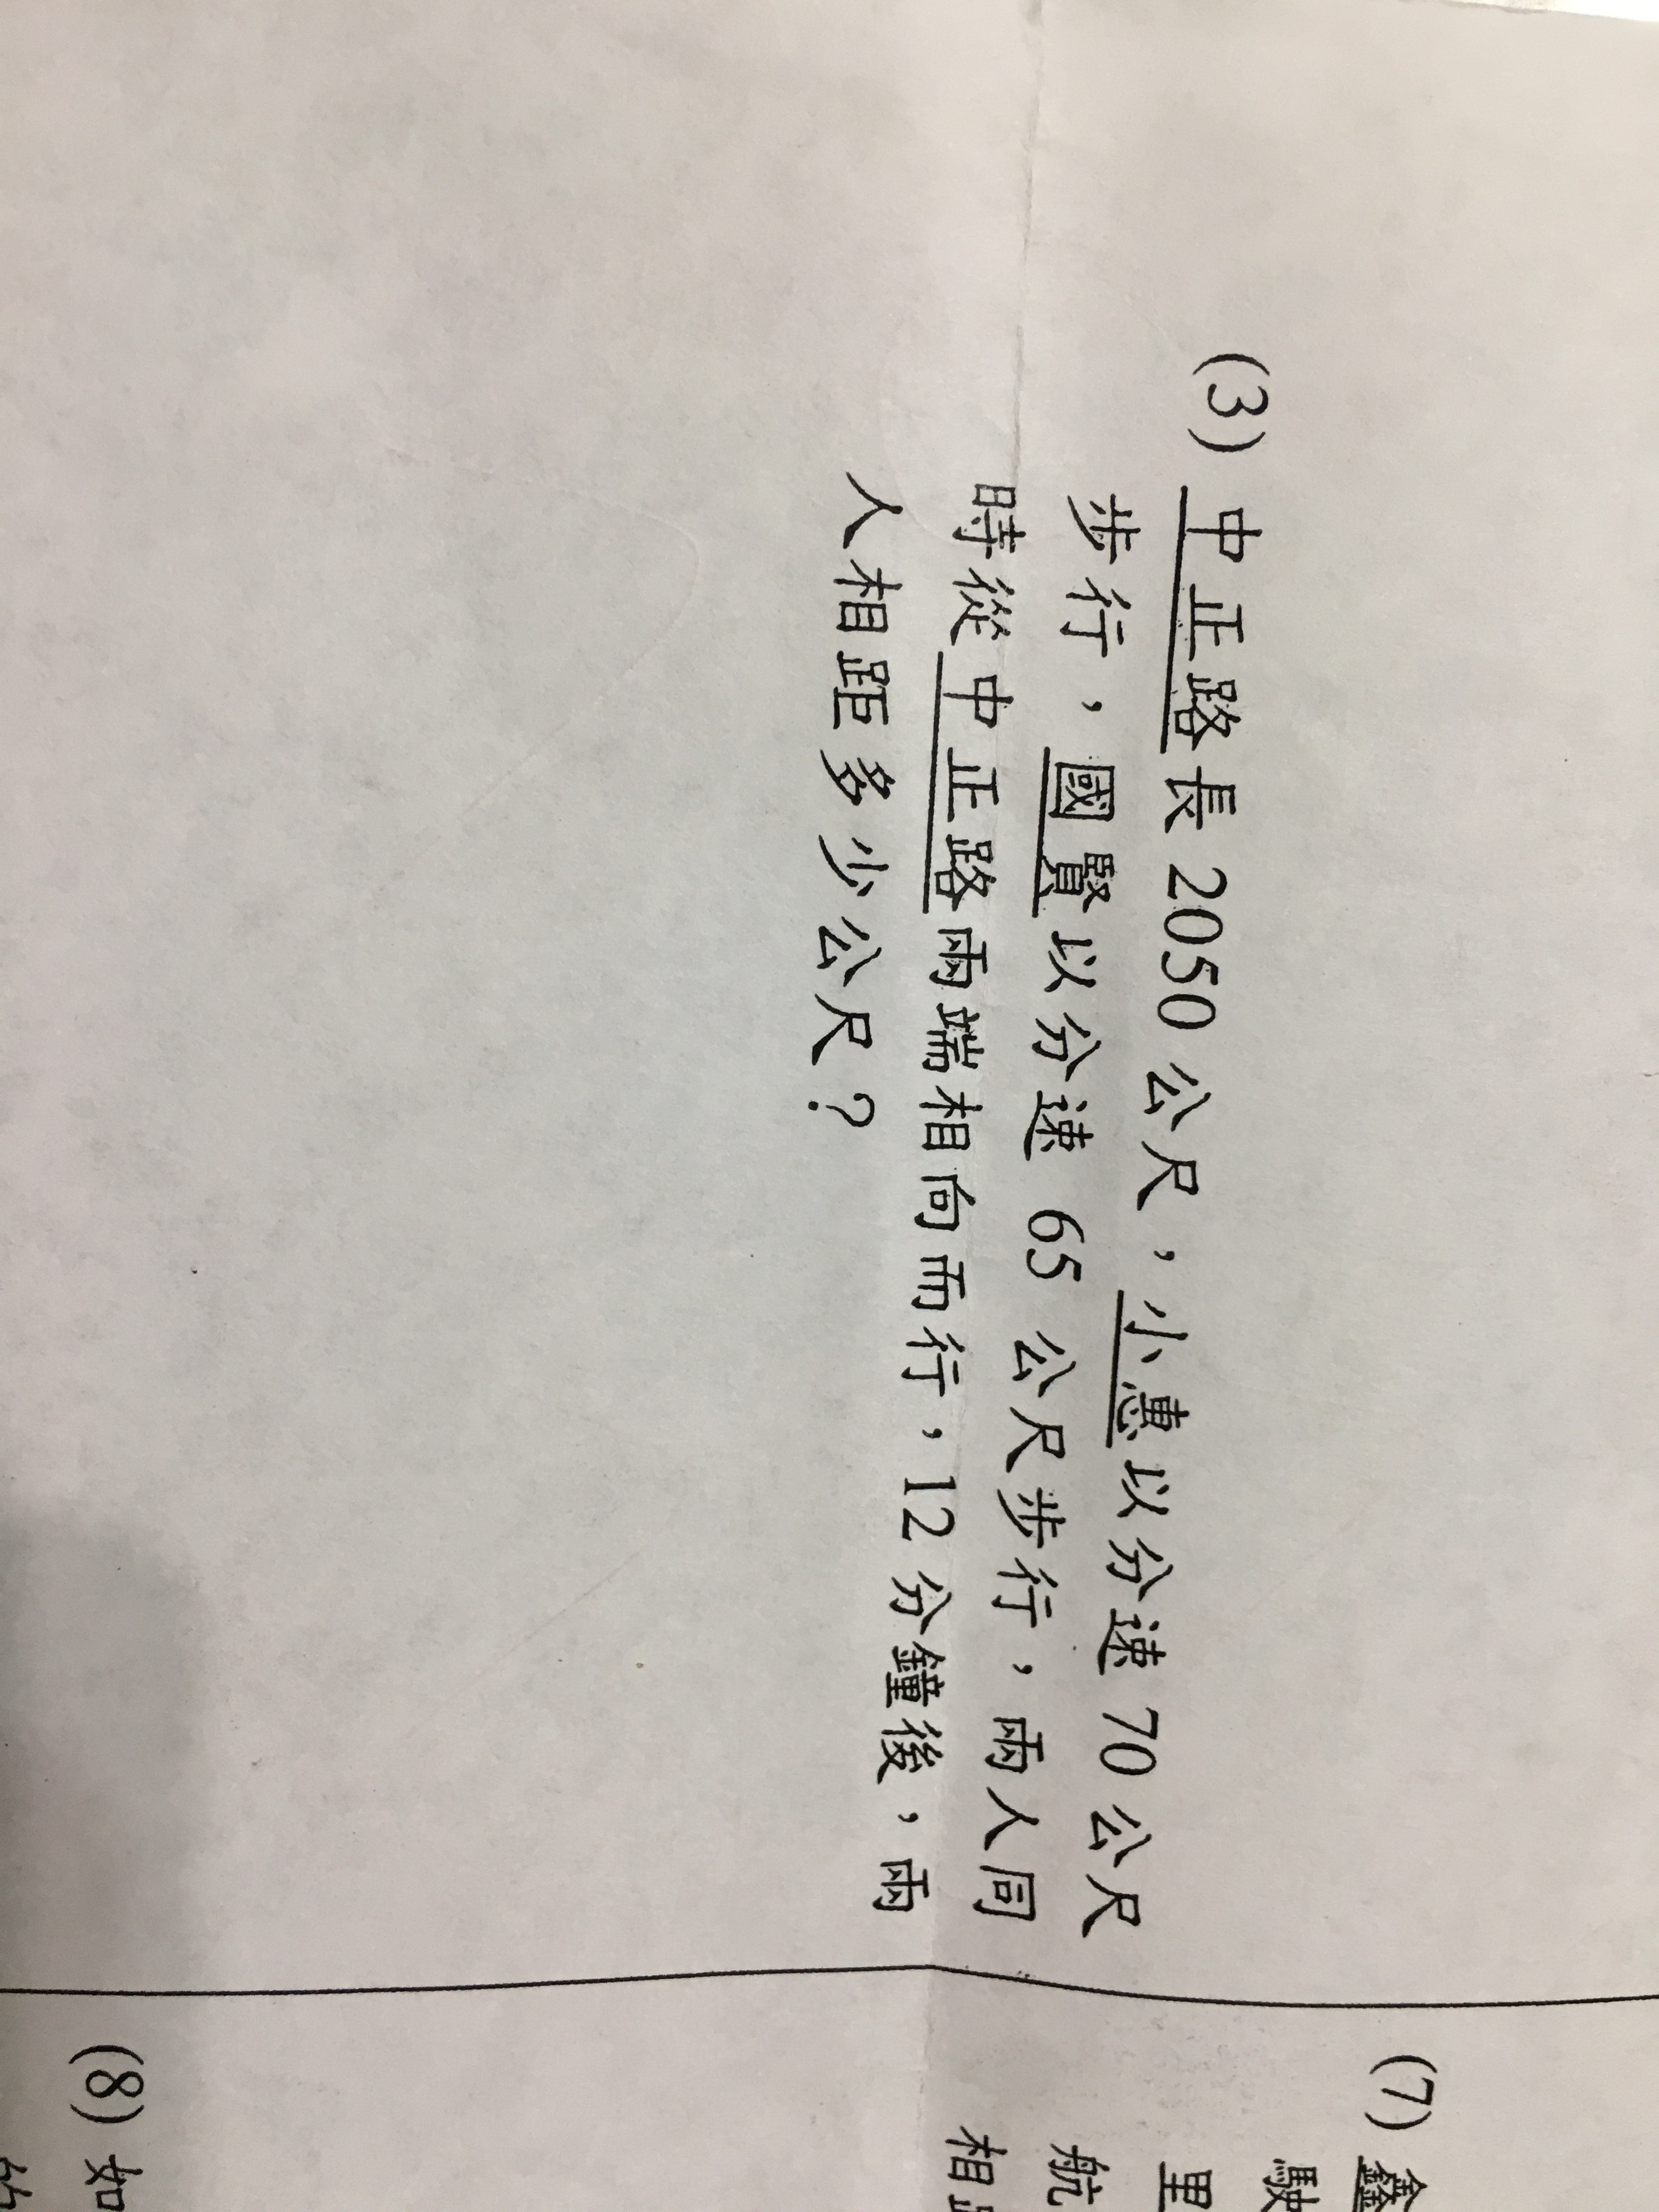 (3) 中正路長 2050 公尺，小惠以分速 70 公尺
步行，國賢以分速 65 公尺步行，兩人同
時從中正路兩端相向而行，12 分鐘後，兩
人相距多少公尺？
(7) 鑫
駛
里
航
相
(8) 如